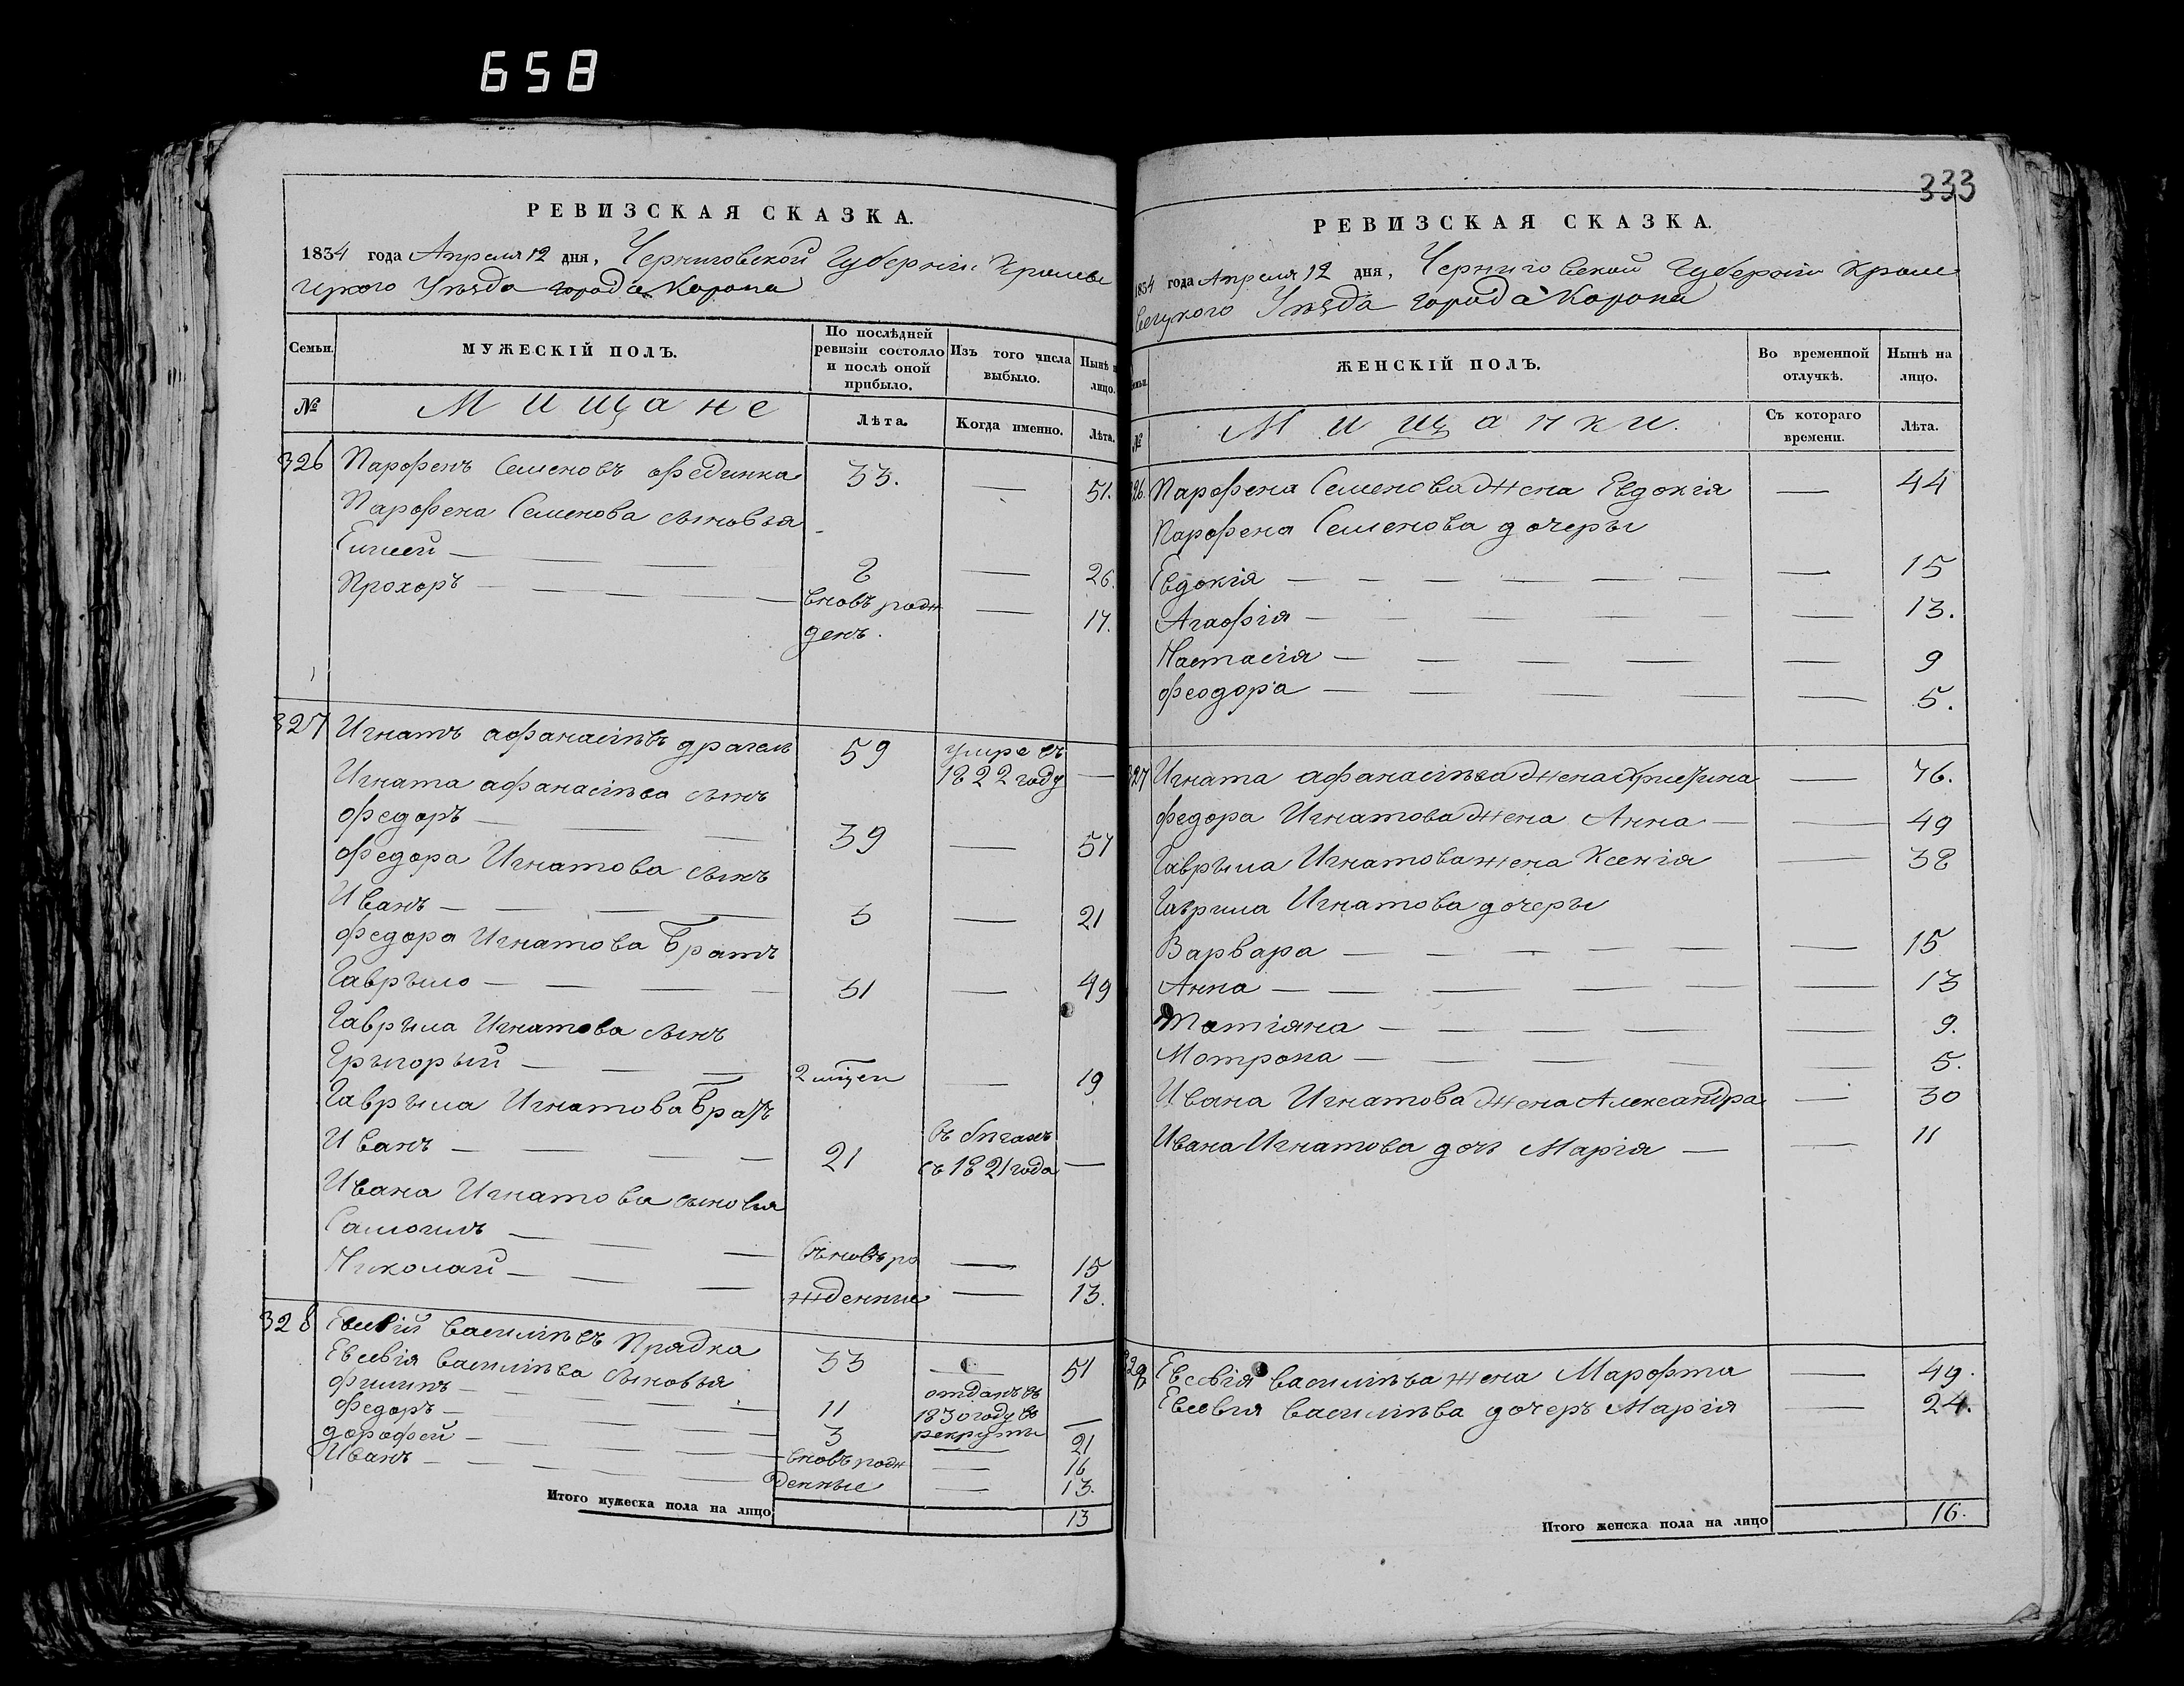 658
РЕВИЗСКАЯ СКАЗКА.
1834 года Апреля 12 дня, Черниговской Губернiи Кролеве
цкого Уѣзда города Коропа
Семьи.
МУЖЕСКІЙ ПОЛЪ.
По послѣдней ревизіи состояло и послѣ оной прибыло.
Изъ того числа выбыло.
Нынѣ на лицо.
№
Мищане
Лѣта.
Когда именно.
Лѣта.
326 Парфенъ Семеновъ Фединка 33. — 51.
Парфена Семенова сыновья
Елисей — 8 — 26.
Прохоръ — вновь рож — 17.
денъ.
327 Игнатъ Афанасіевъ Драгель 59 умре въ
1822 году —
Игната Афанасіева сынъ
Федоръ — 39 — 57
Федора Игнатова сынъ
Иванъ — 3 — 21
Федора Игнатова братъ
Гаврыло — 31 — 49
Гаврыла Игнатова сынъ
Грыгорый — — 19
Гаврыла Игнатова братъ
Иванъ — 21 въ бѣгахъ
съ 1821 года —
Ивана Игнатова сыновья
Самоилъ — вьновь ро — 15
Николай — жденние — 13.
328 Евсевій Василіевъ Прядка 33 — 51
Евсевія Василіева сыновья
Филипъ — 11 отданъ въ
1830 году въ
рекруты —
Федоръ — 3 — 21
Дорофей — вновь рож — 16
Иванъ — денные — 13.
Итого мужеска пола на лицо 13
333
РЕВИЗСКАЯ СКАЗКА.
1834 года Апреля 12 дня, Черниговской Губерніи Кроле
вецкого Уѣзда города Коропа
Семьи.
ЖЕНСКІЙ ПОЛЪ.
Во временной отлучкѣ.
Нынѣ на лицо.
№
Мищанки.
Съ котораго времени.
Лѣта.
326. Парфена Семенова жена Евдокія — 44
Парфена Семенова дочеры
Евдокія — — 15
Агафія — — 13.
Настасія — — 9
Феодора — — 5.
327 Игната Афанасіева жена — 76.
Федора Игнатова жена Анна — — 49
Гаврыла Игнатова жена Ксенія — 38
Гаврила Игнатова дочеры
Варвара — — 15
Анна — — 13
Татіяна — — 9.
Мотрона — — 5.
Ивана Игнатова жена Александра — 30
Ивана Игнатова дочь Марія — — 11
328 Евсевія Василіева жена Марфта — 49.
Евсевія Василіева дочерь Марія — 24.
Итого женска пола на лицо 16.